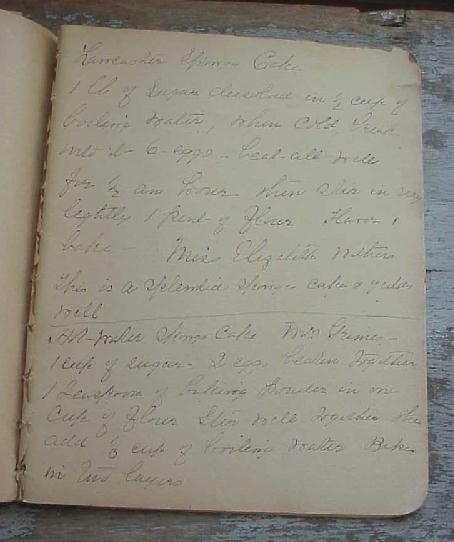 Lancaster Sponge Cake
1 lb of Sugar dissolved in ½ cup of
boiling water, when cold break
into it 6 eggs - beat all well
for ½ an hour then stir in very
lightly 1 pint of flour Flavor &
bake - Miss Elizabeth Withers
This is a splendid Sponge cake &
well
Hot-Water Sponge Cake Mrs Grimes -
1 cup of sugar - 2 eggs beaten together
1 teaspoon of baking powder in one
cup of flour Stir well together then
add cup of boiling water Bake
in two layers